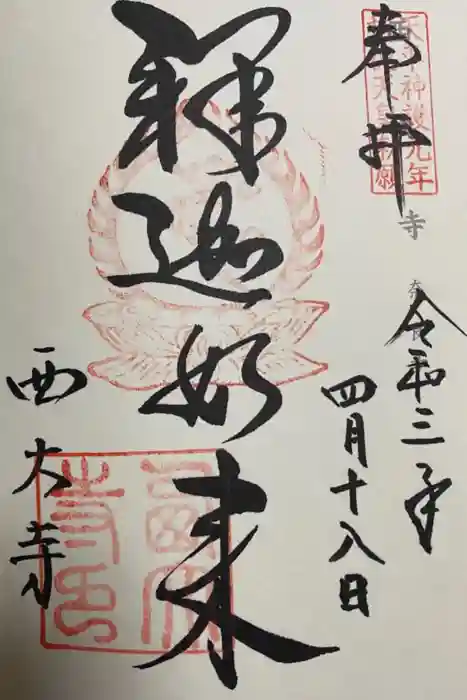 奉拝
天平神護元年
寺
令和三年
四月十八日
釋迦如来
西大寺